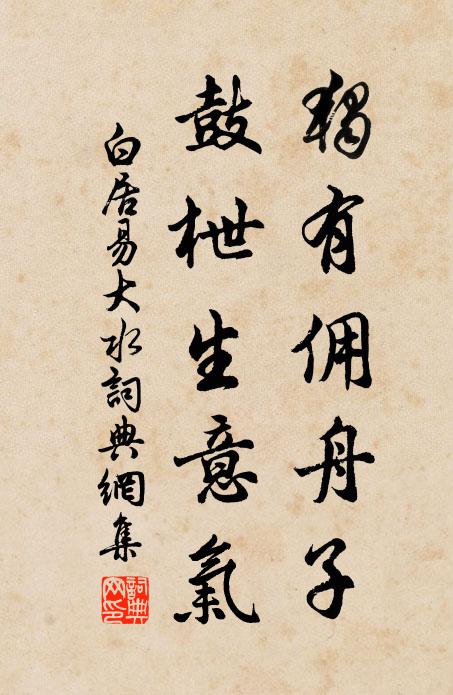 獨有佣舟子
鼓枻生意氣
白居易大水詞典網集
詞典网印